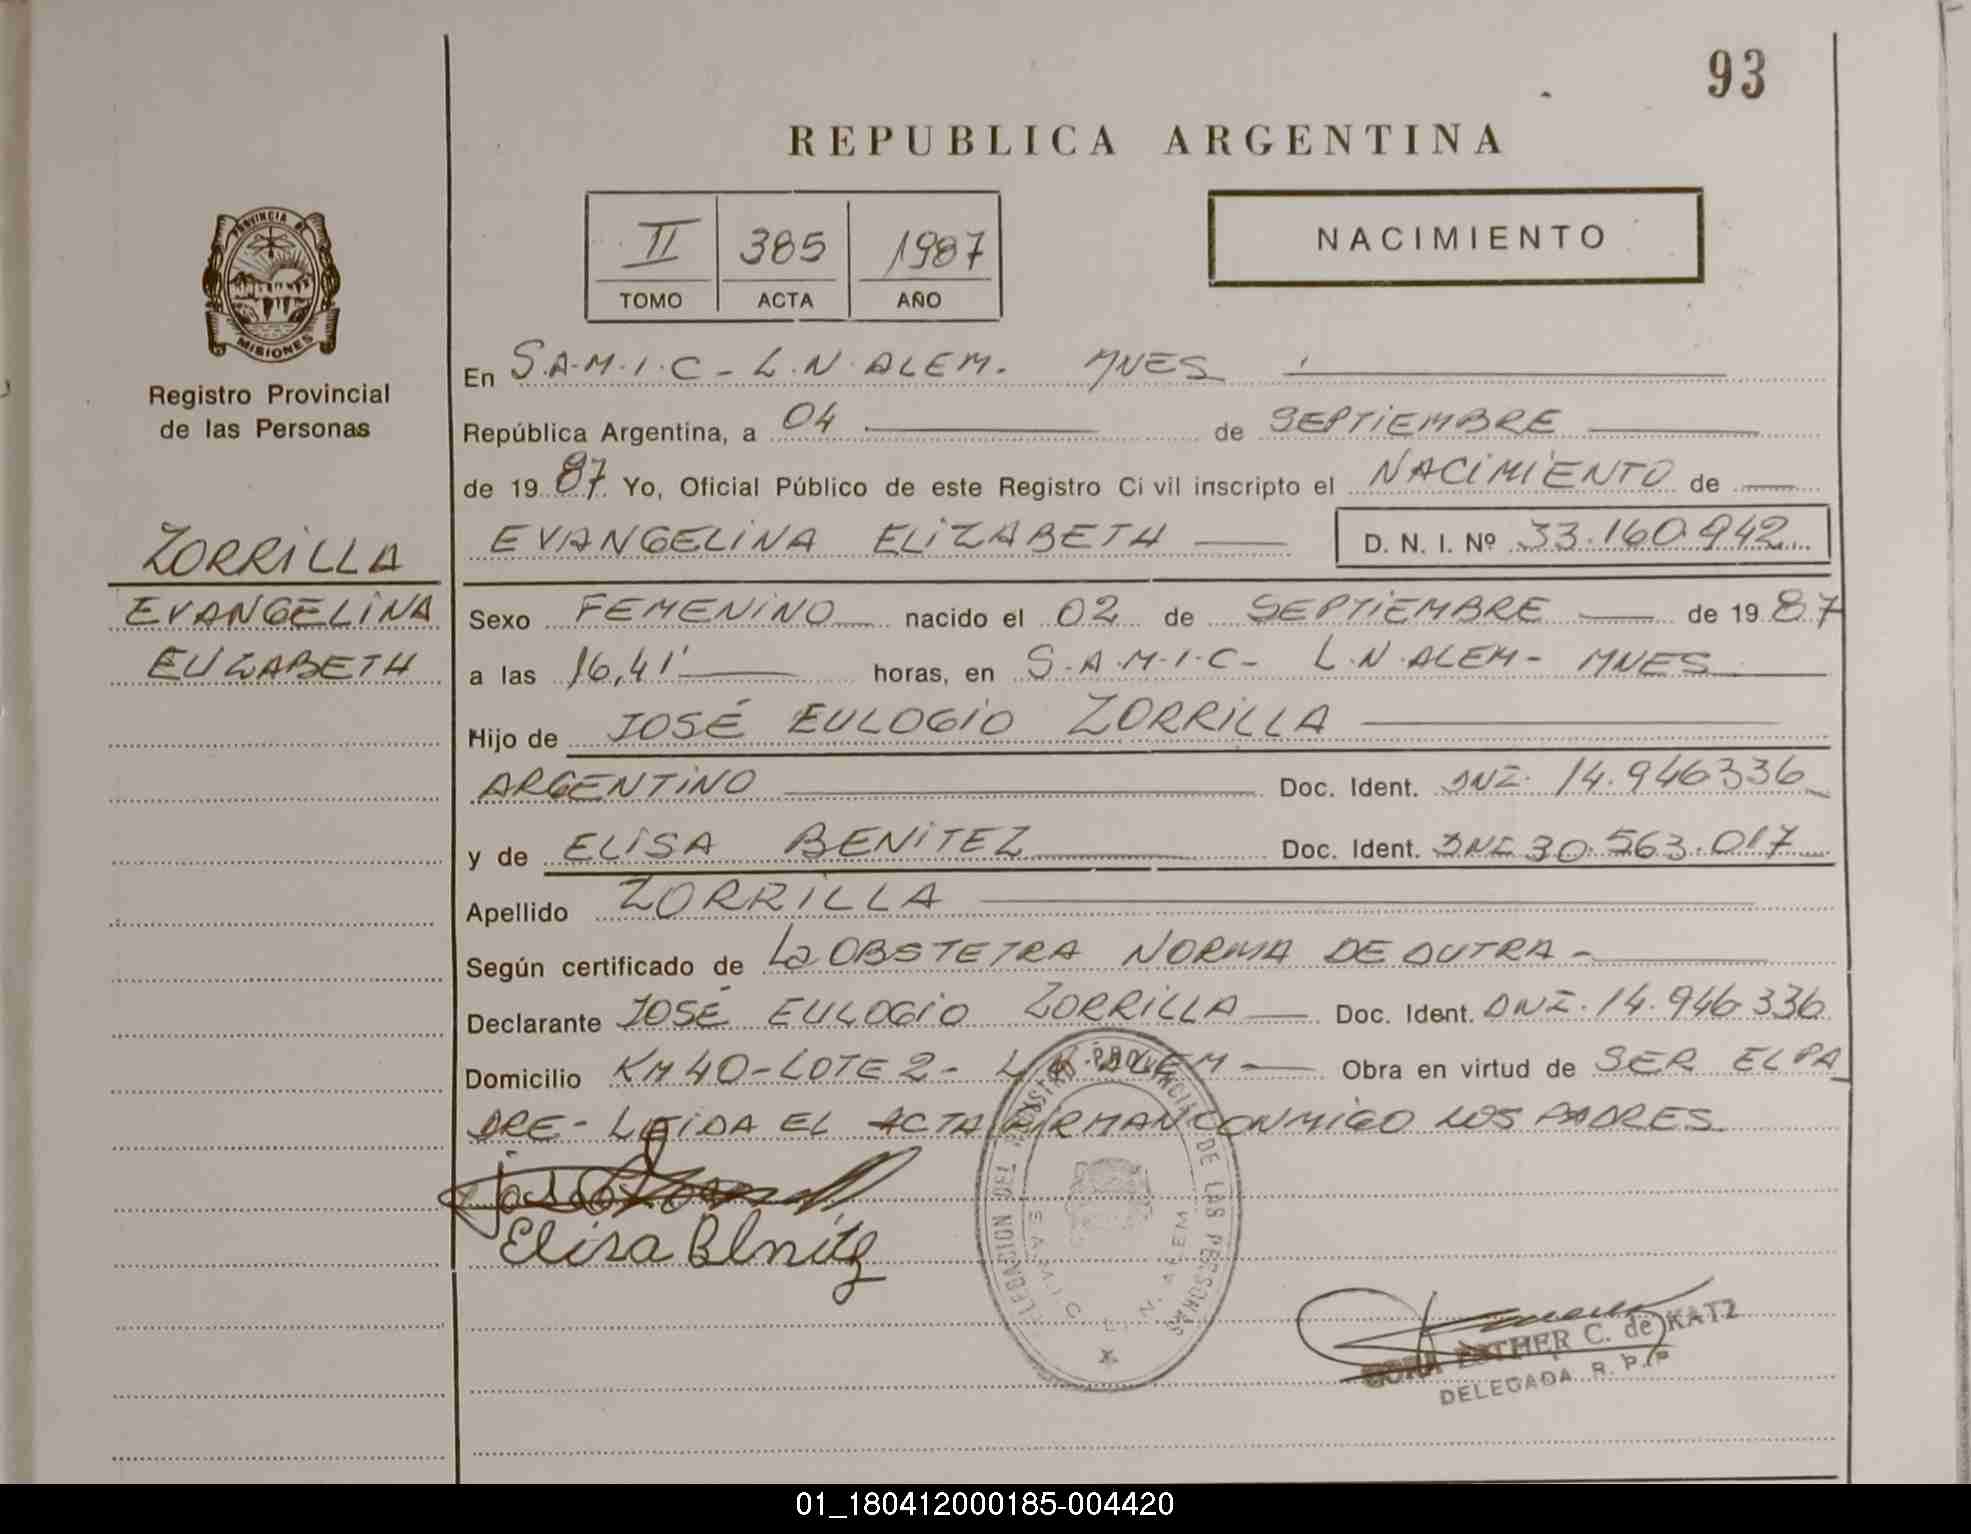 93
REPUBLICA ARGENTINA
PROVINCIA DE
MISIONES
Registro Provincial
de las Personas
II 385 1987
TOMO ACTA AÑO
NACIMIENTO
En S.A.M.I.C - L.N. ALEM. MNES
República Argentina, a 04 de SEPTIEMBRE
de 1987. Yo, Oficial Público de este Registro Civil inscripto el NACIMIENTO de
ZORRILLA
EVANGELINA
ELIZABETH
EVANGELINA ELIZABETH D. N. I. Nº 33.160.942
Sexo FEMENINO nacido el 02 de SEPTIEMBRE de 1987
a las 16,41' horas, en S.A.M.I.C- L.N. ALEM- MNES
Hijo de JOSÉ EULOGIO ZORRILLA
ARGENTINO Doc. Ident. DNI. 14.946336
y de ELISA BENITEZ Doc. Ident. DNI 30.563.017
Apellido ZORRILLA
Según certificado de La OBSTETRA NORMA DE DUTRA -
Declarante JOSÉ EULOGIO ZORRILLA Doc. Ident. DNI. 14.946.336
Domicilio KM 40 - LOTE 2 - L.N. ALEM Obra en virtud de SER EL PA
DRE - LEIDA EL ACTA FIRMAN CONMIGO LOS PADRES
Elisa Benitz
DELEGACION DEL REGISTRO PROVINCIAL DE LAS PERSONAS
S.A.M.I.C. L.N. ALEM
ESTHER C. de KATZ
DELEGADA R. P. P
01_180412000185-004420